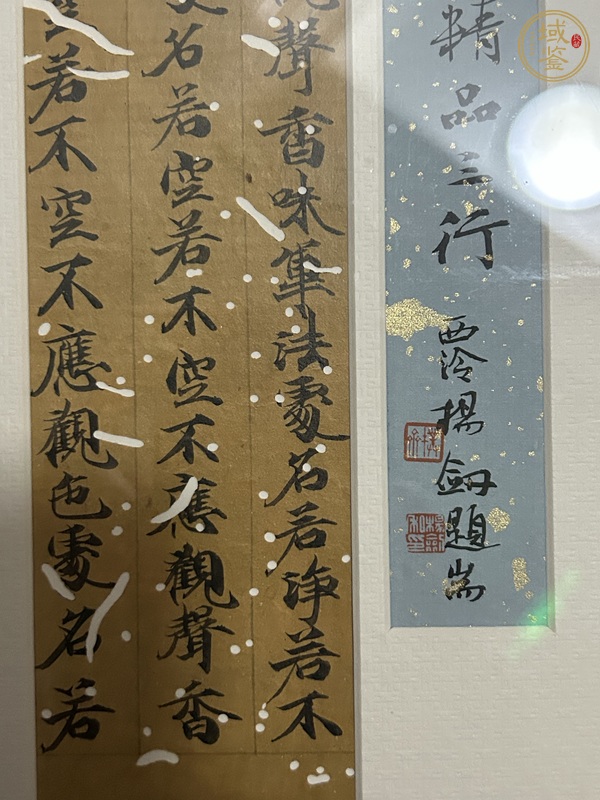 精品三行
西泠楊劍題耑
聲香味軍法處名若淨若不
名若空若不空不應觀聲香
若不空不應觀色處名若
域鑒